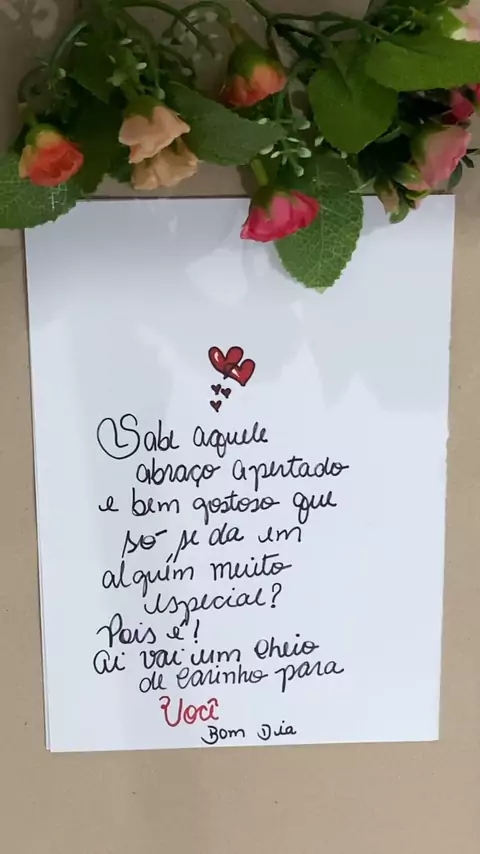 Sabe aquele
abraço apertado
e bem gostoso que
só se da em
alguém muito
especial?
Pois é!
Ai vai um cheio
de carinho para
Você
Bom Dia